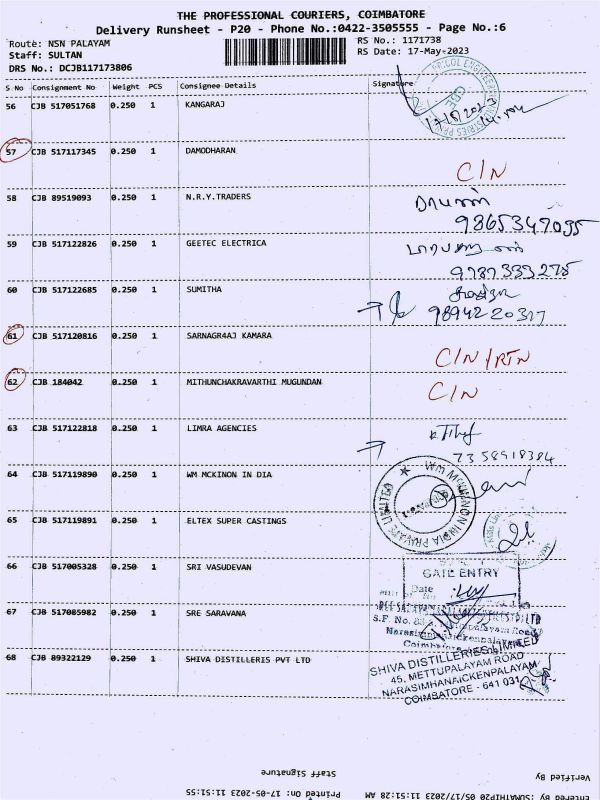 THE PROFESSIONAL COURIERS, COIMBATORE
Delivery Runsheet - P20 - Phone No.:0422-3505555 - Page No.:6
Route: NSN PALAYAM RS No.: 1171738
Staff: SULTAN RS Date: 17-May-2023
DRS No.: DCJB117173806
S No Consignment No Weight PCS Consignee Details Signature
56 CJB 517051768 0.250 1 KANGARAJ
57 CJB 517117345 0.250 1 DAMODHARAN
C/N
58 CJB 89519093 0.250 1 N.R.Y.TRADERS
9865347035
59 CJB 517122826 0.250 1 GEETEC ELECTRICA
9787333275
60 CJB 517122685 0.250 1 SUMITHA
9894220317
61 CJB 517120816 0.250 1 SARNAGR4AJ KAMARA
C/N/RTN
62 CJB 184042 0.250 1 MITHUNCHAKRAVARTHI MUGUNDAN
C/N
63 CJB 517122818 0.250 1 LIMRA AGENCIES
7358918384
64 CJB 517119890 0.250 1 WM MCKINON IN DIA
65 CJB 517119891 0.250 1 ELTEX SUPER CASTINGS
66 CJB 517005328 0.250 1 SRI VASUDEVAN
GATE ENTRY
Date
67 CJB 517085982 0.250 1 SRE SARAVANA
S.F. No.
68 CJB 89322129 0.250 1 SHIVA DISTILLERIS PVT LTD
SHIVA DISTILLERIES LIMITED
45, METTUPALAYAM ROAD
NARASIMHANAICKENPALAYAM
COIMBATORE - 641 031
Staff Signature Verified By
Printed On: 17-05-2023 11:51:55 Entered By: SUMATHIP20 05/17/2023 11:51:28 AM